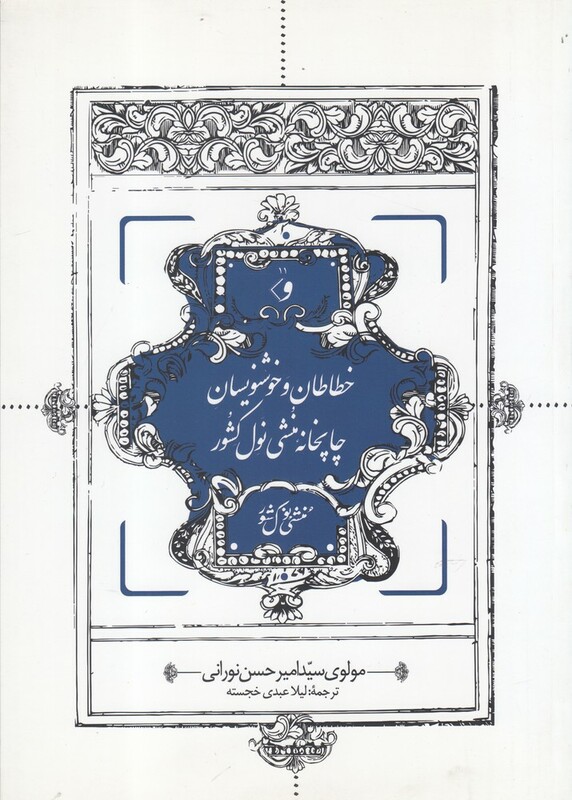 خطاطان و خوشنویسان
چاپخانهٔ مُنشی نول کشُور
مُنشی نول کشُور
مولوی سیّد امیر حسن نورانی
ترجمهٔ: لیلا عبدی خجسته